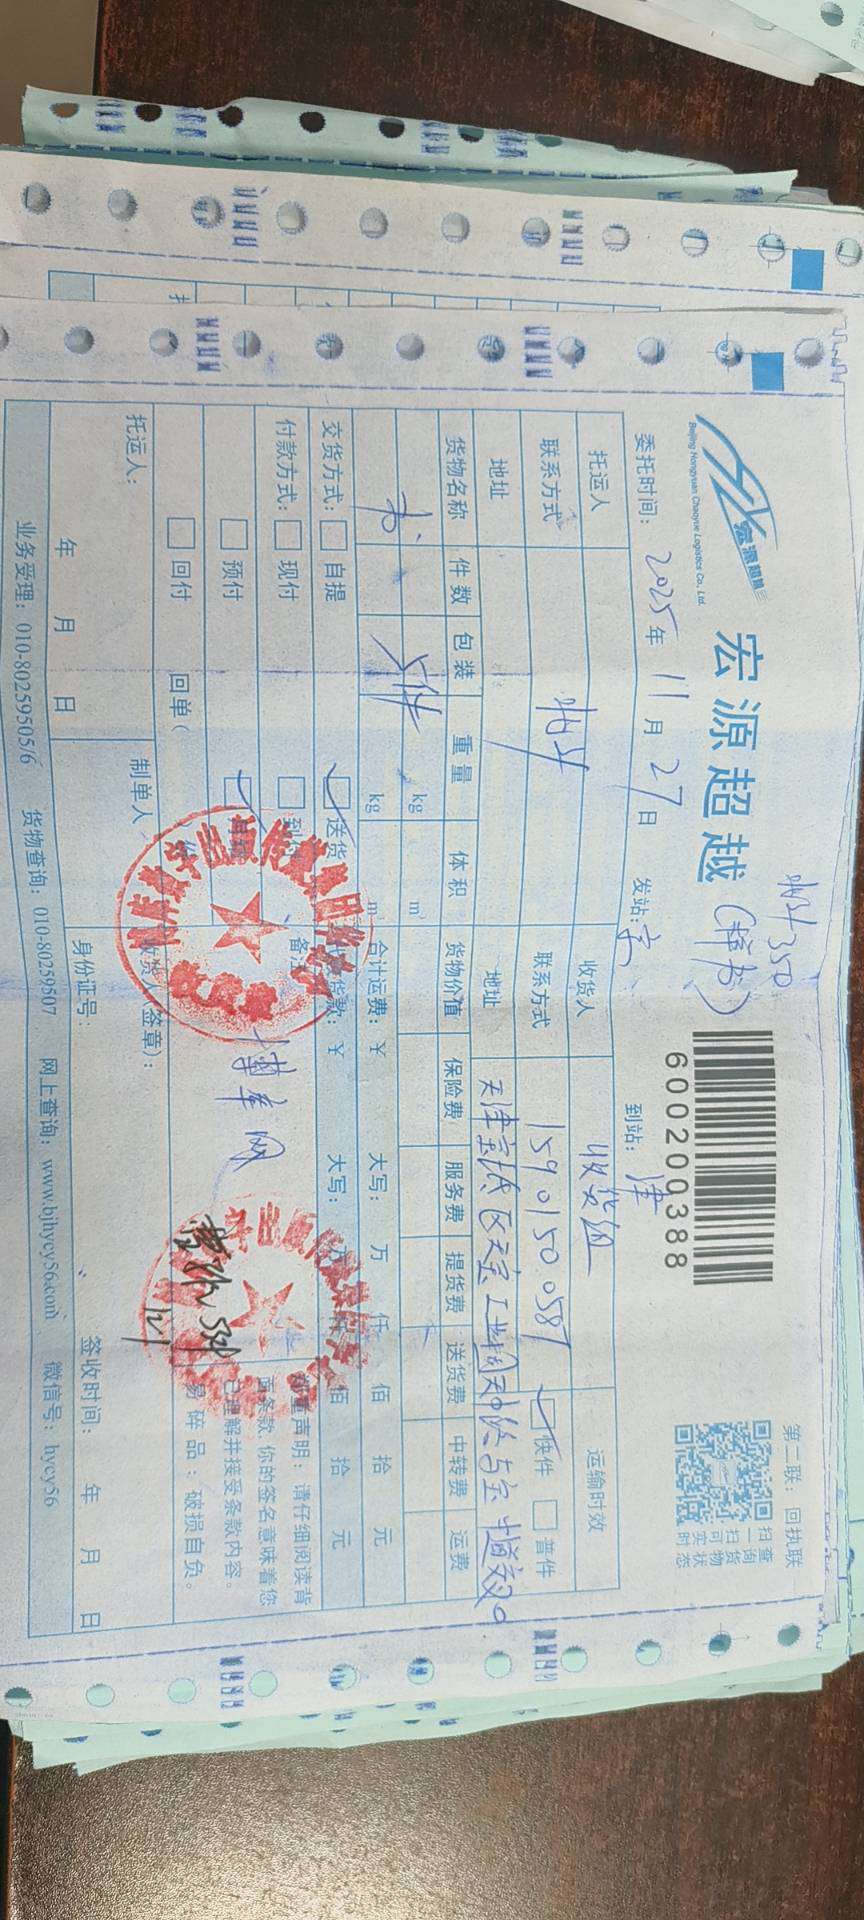 宏源超越
Beijing Hongyuan Chaoyue Logistics Co., Ltd.
宏源超越(样书)
600200388
第二联:回执联
扫一扫可实时
查询货物状态
委托时间:2025年11月27日 发站:京 到站:津
托运人 收货人 收货组 运输时效
联系方式 联系方式 15901500587 快件 普件
地址 地址 天津宝坻区天宝工业园天
货物名称 件数 包装 重量 体积 货物价值 保险费 服务费 提货费 送货费 中转费 运费
书 5件 kg m³
kg m³
交货方式: 自提 送货 合计运费:¥ 大写: 万 仟 佰 拾 元
付款方式: 现付 到付 货款:¥ 大写: 万 仟 佰 拾 元
预付 月结 备注
回付 回单( 份
声明:请仔细阅读背
面条款 你的签名意味着您
已理解并接受条款内容。
易碎品:破损自负。
托运人: 制单人 收货人(签章):
身份证号:
年 月 日 签收时间: 年 月 日
业务受理:010-80259505/6 货物查询:010-80259507 网上查询:www.bjhycy56.com 微信号:hycy56